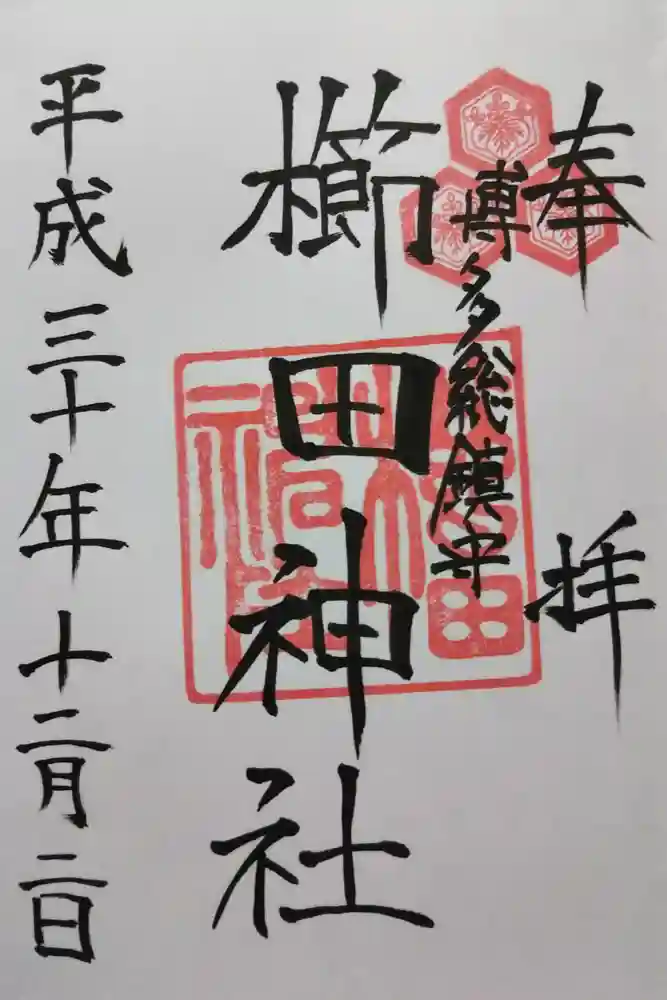 奉拝
博多総鎮守
櫛田神社
平成三十年十二月二日